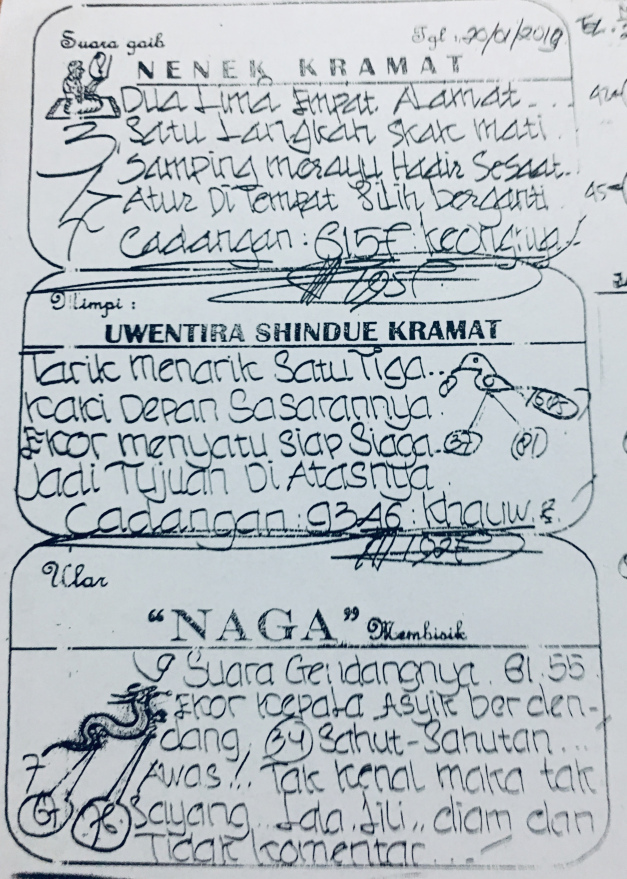 Suara gaib Tgl : 20/01/2019
NENEK KRAMAT
Dua Lima Empat Alamat...
Satu Langkah skak mati.
Samping merayu Hadir Sesaat..
Atur Di Tempat Silih berganti
Cadangan : 6157 : keongnya
Mimpi :
UWENTIRA SHINDUE KRAMAT
Tarik menarik Satu Tiga..
kaki Depan Sasarannya.
Ekor menyatu siap Siaga..
37 81
Jadi Tujuan Di Atasnya.
Cadangan : 9346 : Khauw.
Ular
"NAGA" Membisik
9 Suara Gendangnya. 81.55
Ekor kepala Asyik berden-
dang, 34 Sahut-Sahutan...
7 Awas!! Tak kenal maka tak
Sayang, Lala Lili,, diam dan
Tidak komentar....